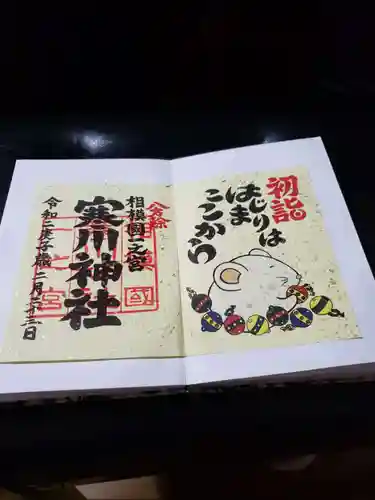 初詣
はじまりは
ここから
八方除
相模國一之宮
寒川神社
令和二庚子歳二月二十三日